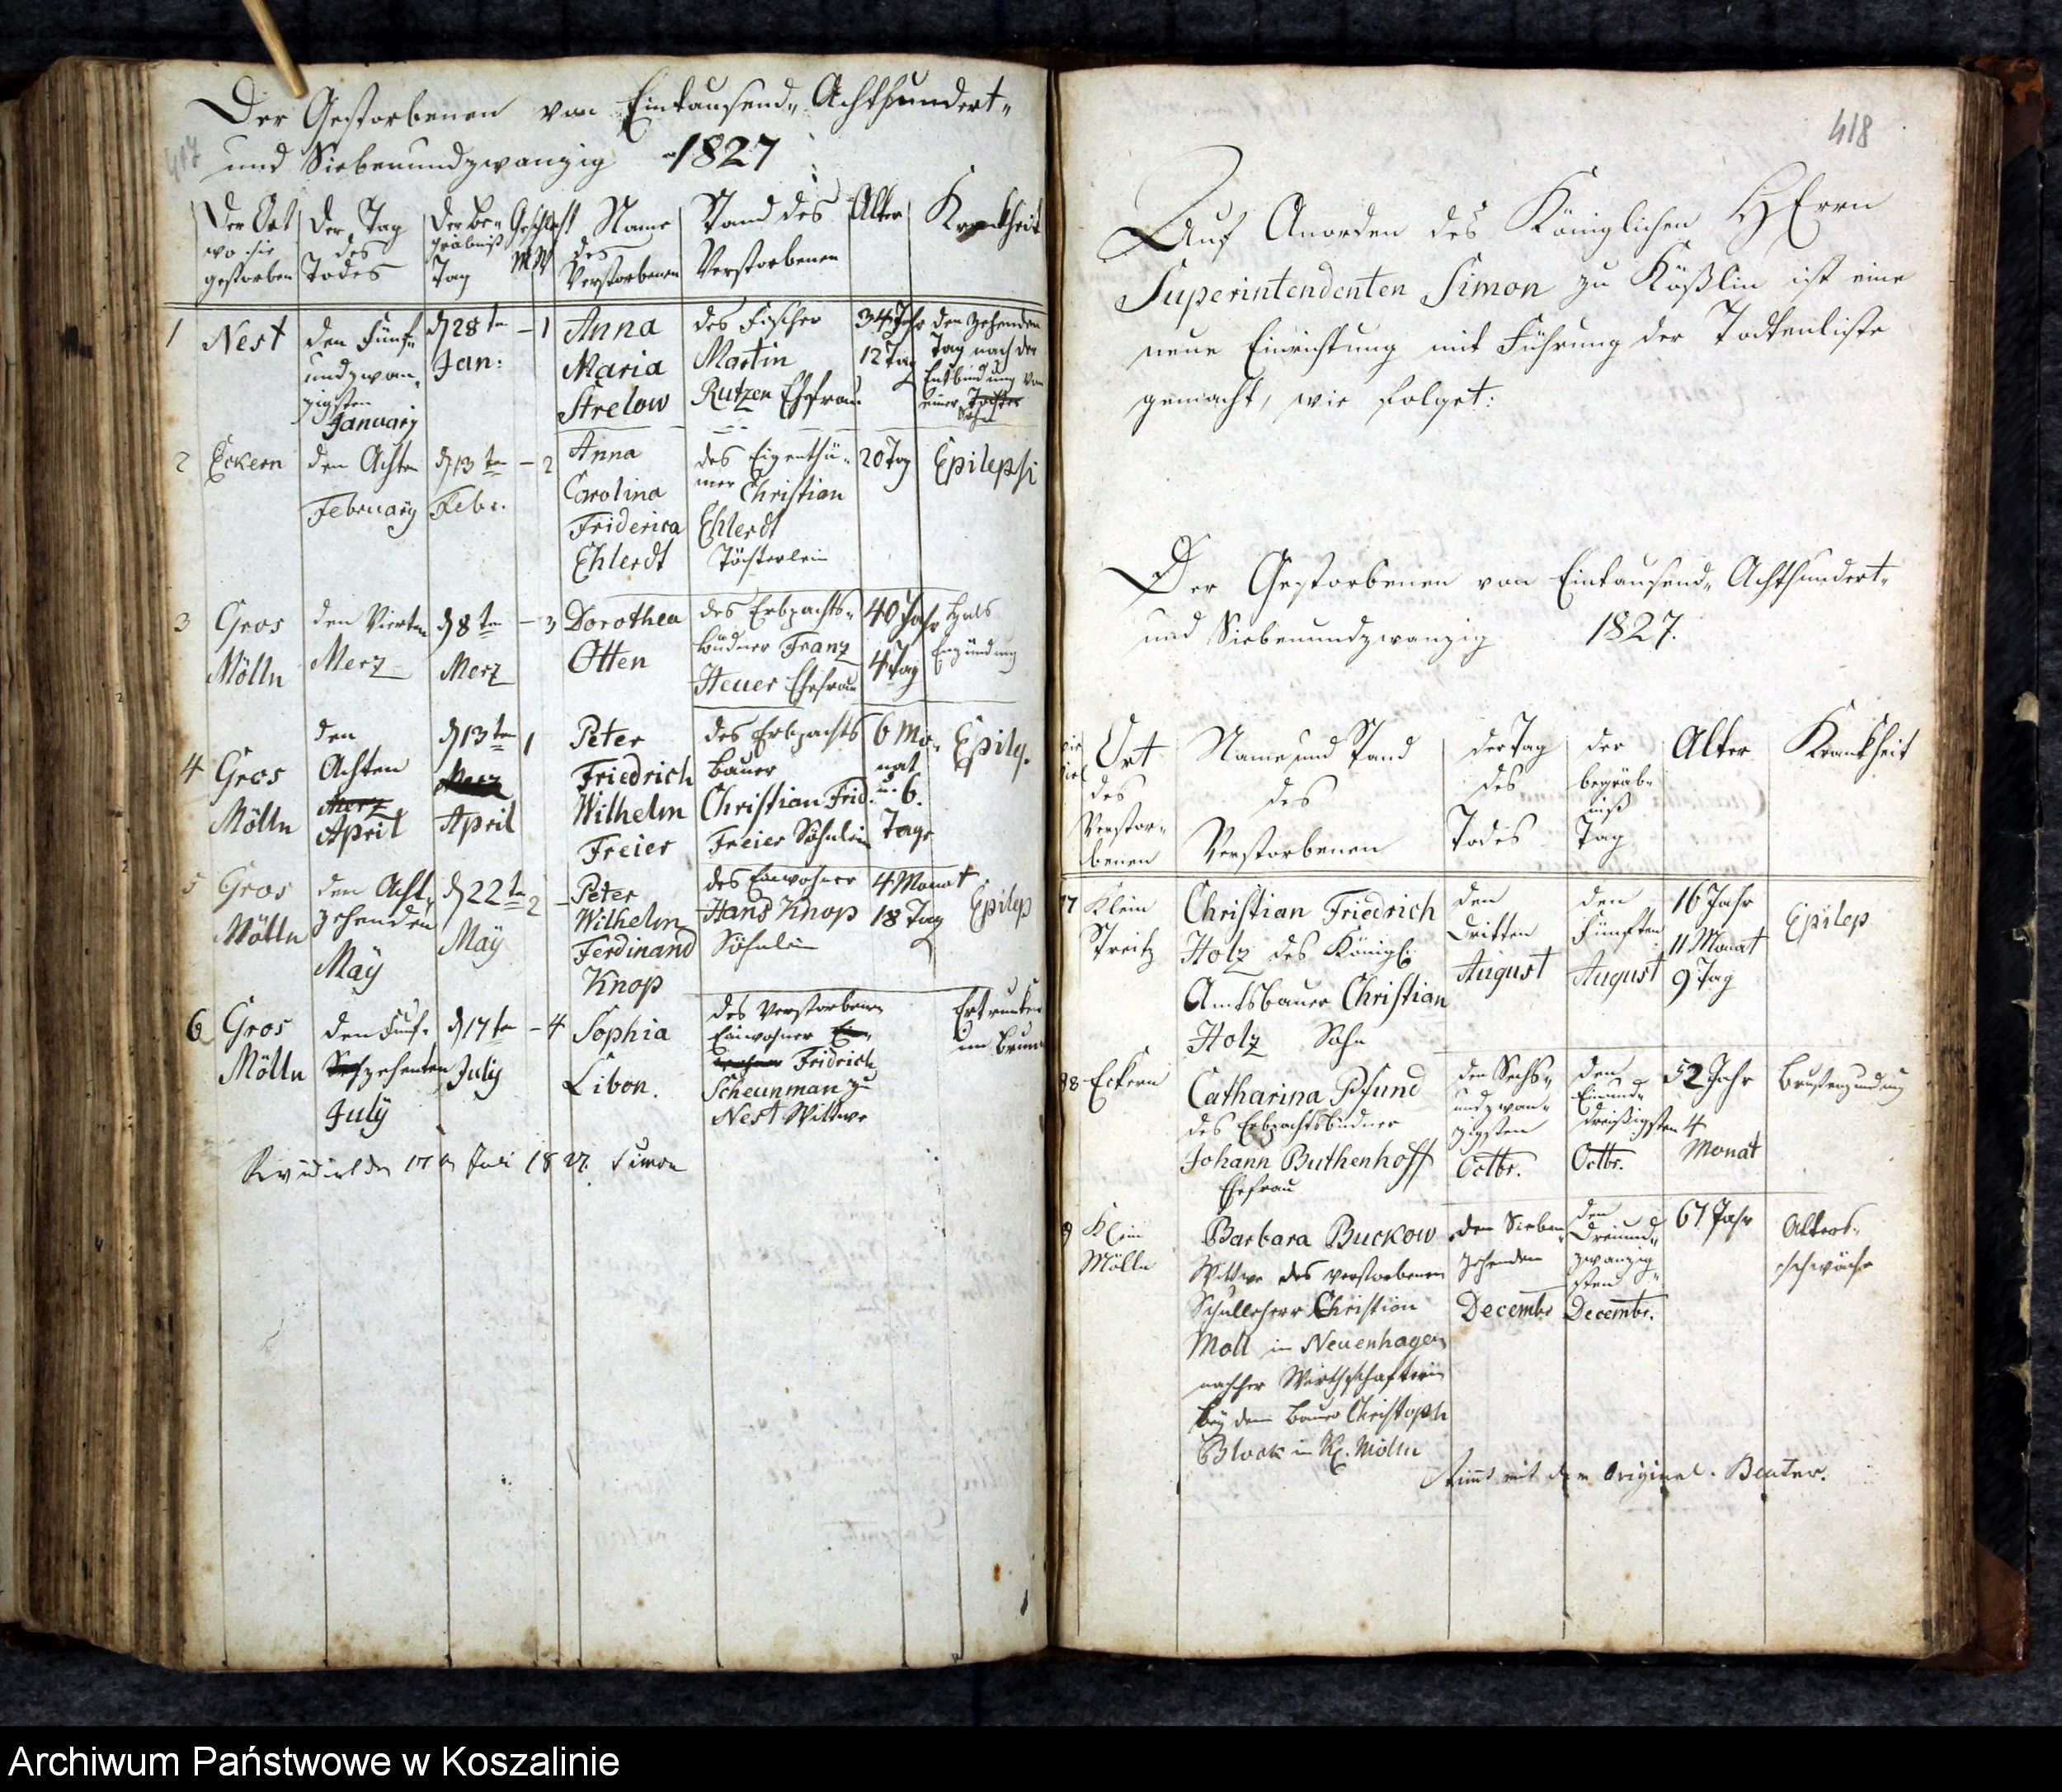 Der Gestorbenen von Eintausend„ Achthundert„
und Siebenundzwanzig 1827
417
Der Ort wo sie gestorben
Der Tag des Todes
Der Be„ gräbniß Tag
Geschlecht M W
Name des Verstorbenen
Stand des Verstorbenen
Alter
Krankheit
1 Nest
den Fünf„ undzwan„ zigsten January
d 28 ten Jan:
– 1
Anna Maria Strelow
des Fischer Martin Rutzen Ehefrau
34 Jahr 12 Tag
den zehenden Tag nach der Entbindung von einer Tochter Sohn
2 Eckern
den Achten February
d 13 ten Febr.
– 2
Anna Carolina Friderica Ehlerdt
des Eigenthü„ mer Christian Ehlerdt Töchterlein
20 Tag
Epilepsi
3 Gros Mölln
den Vierten Merz
d 8 ten Merz
– 3
Dorothea Otten
des Erbpachts„ büdner Franz Heuer Ehefrau
40 Jahr 4 Tag
Hals Enzündung
4 Gros Mölln
den Achten Merz April
d 13 ten Merz April
1
Peter Friedrich Wilhelm Freier
des Erbpachts bauer Christian Frid. Freier Söhnlein
6 Mo„ nat u. 6. Tage
Epilep.
5 Gros Mölln
den Acht„ zehenden Maÿ
d 22 ten Maÿ
2 –
Peter Wilhelm Ferdinand Knop
des Einwohner Hans Knop Söhnlein
4 Monat 18 Tag
Epilep
6 Gros Mölln
den Fünf„ zehenten July
d 17 ten July
– 4
Sophia Libon.
des Verstorbenen Einwohner Ein„ wohner Fridrich Scheunman zu Nest Wittwe
Ertrunken im Brun
Revidirt den 17 ten Juli 1827. Simon
418
Auf Anorden des Königlichen HErrn
Superintendenten Simon zu Kößlin ist eine
neue Einrichtung mit Führung der Todtenliste
gemacht, wie folget:
Der Gestorbenen von Eintausend„ Achthundert„
und Siebenundzwanzig 1827.
wie viel
Ort des Verstor„ benen
Name und Stand des Verstorbenen
der Tag des Todes
der begräb„ niß Tag
Alter
Krankheit
7 Klein Streitz
Christian Friedrich
Holz des Königl:
Amtsbauer Christian
Holz Sohn
den Dritten August
den Fünften August
16 Jahr 11 Monat 9 Tag
Epilep
8 Eckern
Catharina Pfund
des Erbpachtsbüdner
Johann Buthenhoff
Ehefrau
den Sechs„ undzwan„ zigsten Octbr.
den Einund„ dreißigsten Octbr.
52 Jahr 4 Monat
Brustenzündung
9 Klein Mölln
Barbara Buckow
Wittwe des verstorbenen
Schullehrer Christian
Moll in Neuenhagen
nachher Wirthschafterin
beÿ dem Bauer Christoph
Block in Kl. Mölln
den Sieben„ zehenden Decembr
den Dreiund„ zwanzig„ sten Decembr.
67 Jahr
Alters„ schwäche
Stimmt mit dem Original. Beuter.
Archiwum Państwowe w Koszalinie